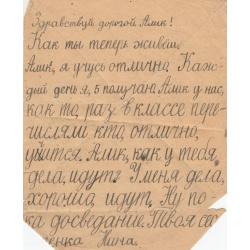 Здравствуй дорогой Алик!
Как ты теперь живёш.
Алик, я учусь отлично. Каж-
дый день я, 5 получаю. Алик у нас,
как то, раз, в классе пере-
числяли кто, отлично,
учится. Алик, как, у тебя,
дела, идут? У меня дела,
хорошо, идут. Ну по-
ка досведание. Твоя сес-
тёнка Нина.